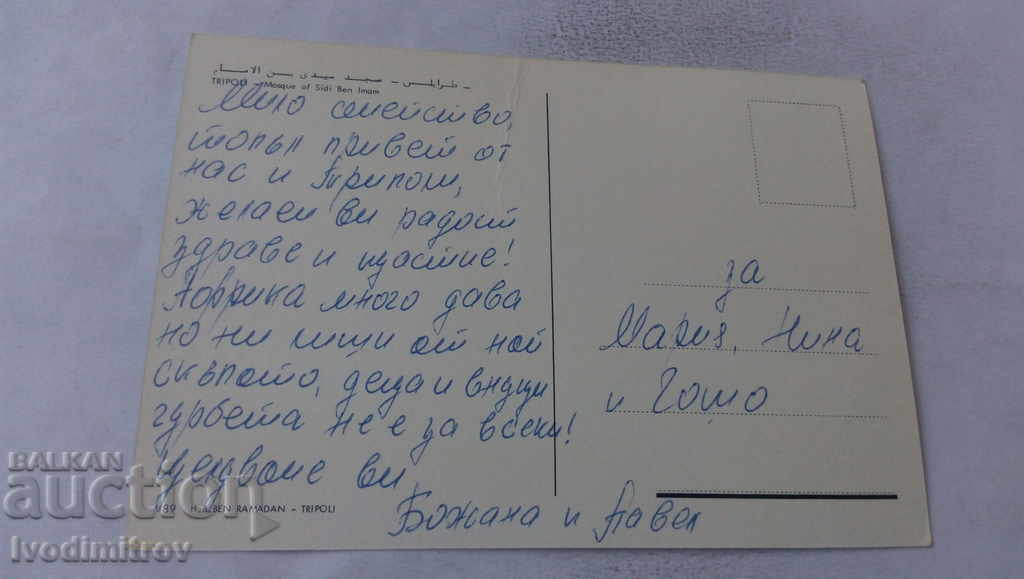 طرابلس – مسجد سيدى بن الامام –
TRIPOLI – Mosque of Sidi Ben Imam
Мило семейство,
топъл привет от
нас и Триполи,
желаем ви радост
здраве и щастие!
Африка много дава
но ни лиши от най
скъпото, деца и внуци
гурбета не е за всеки!
Целуваме ви
Божана и Павел
за
Мария, Нина
и Гошо
BEN RAMADAN – TRIPOLI
BALKAN
auction
Ivodimitrov